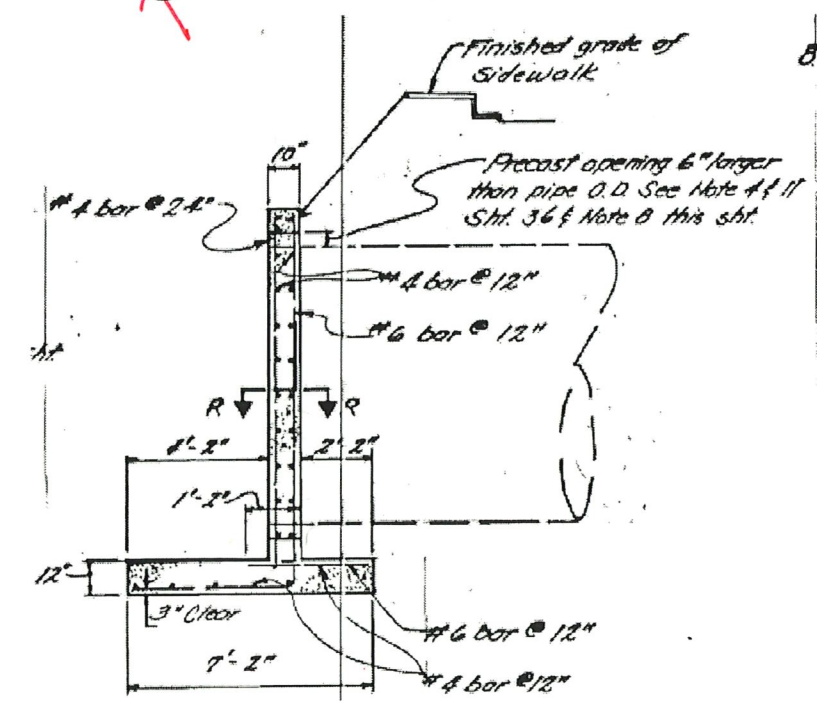 Finished grade of
Sidewalk
10"
Precast opening 6" larger
than pipe O.D. See Note 4 & 11
Sht. 36 & Note 8 this sht.
#4 bar @ 24"
#4 bar @ 12"
#6 bar @ 12"
sht.
R
R
4'-2"
2'-2"
1'-2"
12"
3" Clear
#6 bar @ 12"
7'-2"
#4 bar @ 12"